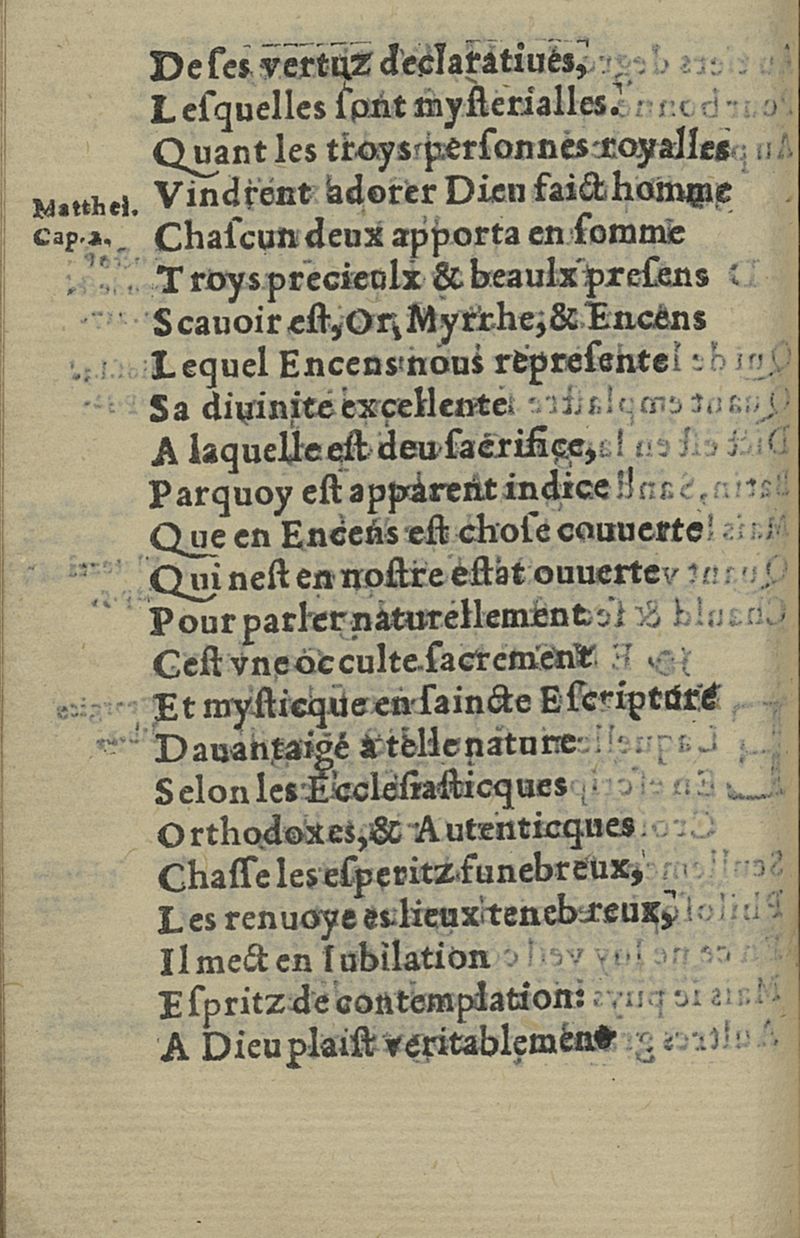 De ses vertuz declaratiues,
Lesquelles sont mysterialles.
Quant les troys personnes royalles
Matthei. Vindrent adorer Dieu faict homme
Cap. 2. Chascun deux apporta en somme
Troys precieulx & beaulx presens
Scauoir est, Or, Myrrhe, & Encens
Lequel Encens nous represente
Sa diuinite excellente
A laquelle est deu sacrifice,
Parquoy est apparent indice
Que en Encens est chose couuerte
Qui nest en nostre estat ouuerte
Pour parler naturellement
Cest vne occulte sacrement
Et mysticque en saincte Escripture
Dauantaige à telle nature
Selon les Ecclesiasticques
Orthodoxes, & Autenticques
Chasse les esperitz funebreux,
Les renuoye es lieux tenebreux,
Il mect en Iubilation
Espritz de contemplation:
A Dieu plaist veritablement